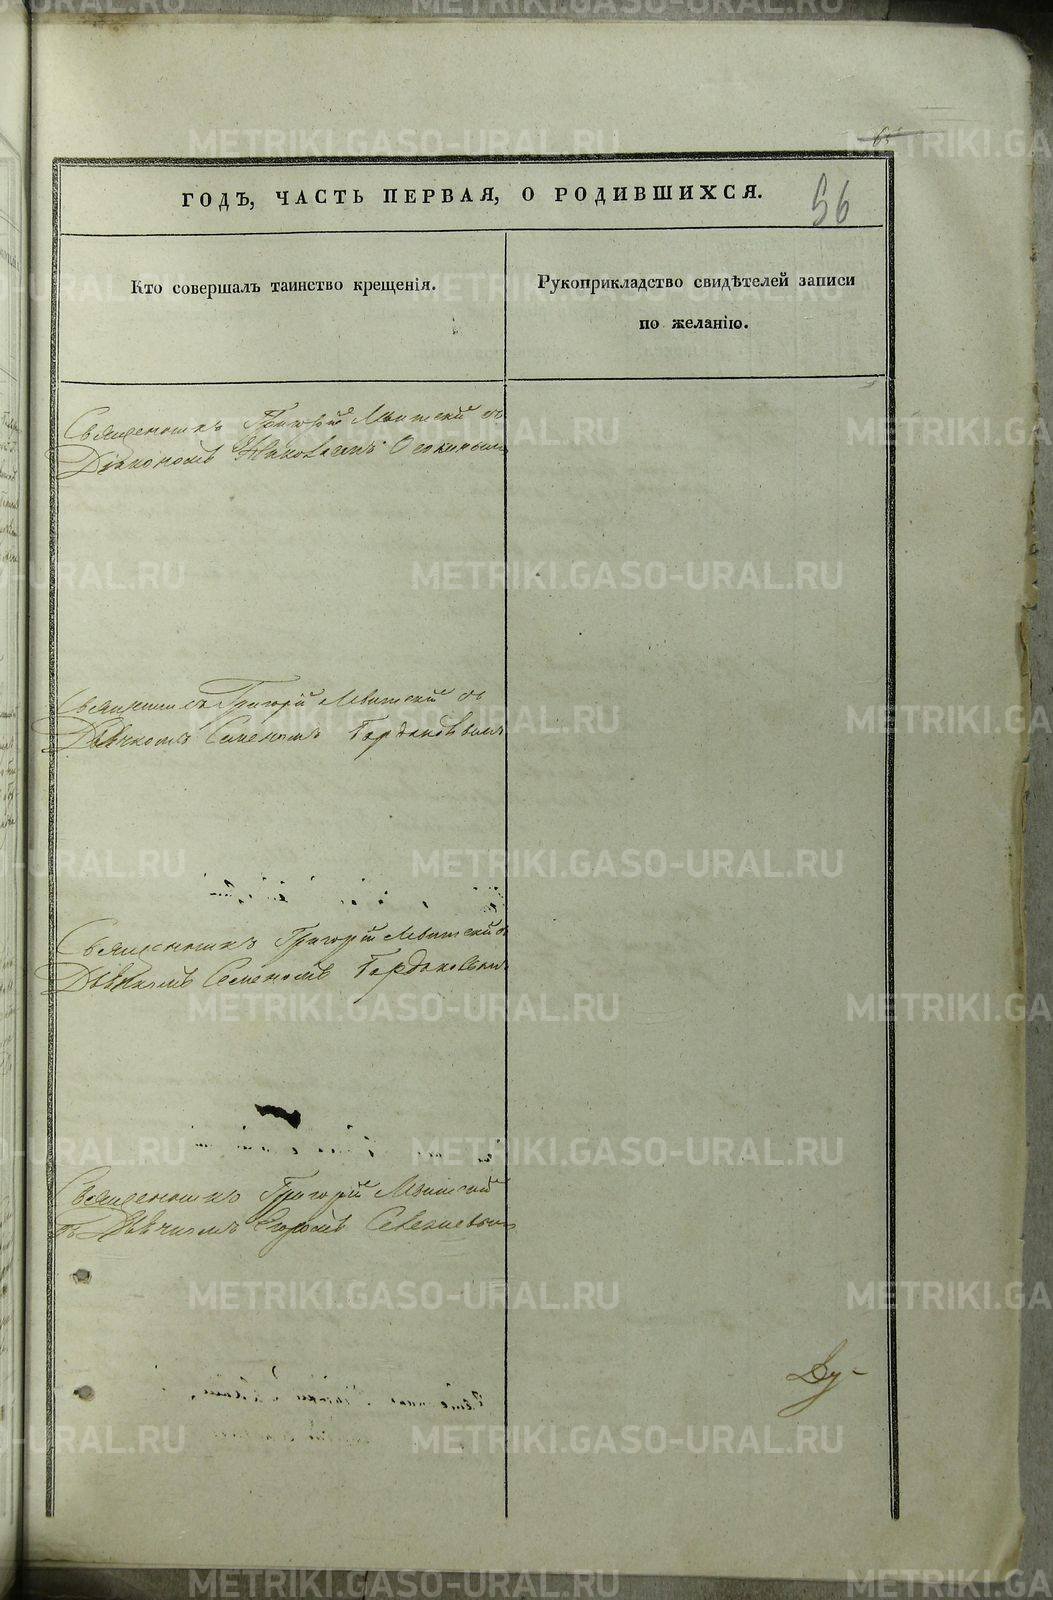 65
ГОДЪ, ЧАСТЬ ПЕРВАЯ, О РОДИВШИХСЯ.
56
Кто совершалъ таинство крещенія.
Рукоприкладство свидѣтелей записи
по желанію.
Священникъ Григорій Левитскій съ
Діакономъ Яковомъ
Священникъ Григорій Левитскій съ
Дьячкомъ Семеномъ Гордаковымъ
Священникъ Григорій Левитскій съ
Дьячкомъ Семеномъ Гордаковымъ
Священникъ Григорій Левитскій
съ Дьячкомъ Егоромъ
Ду-
METRIKI.GASO-URAL.RU